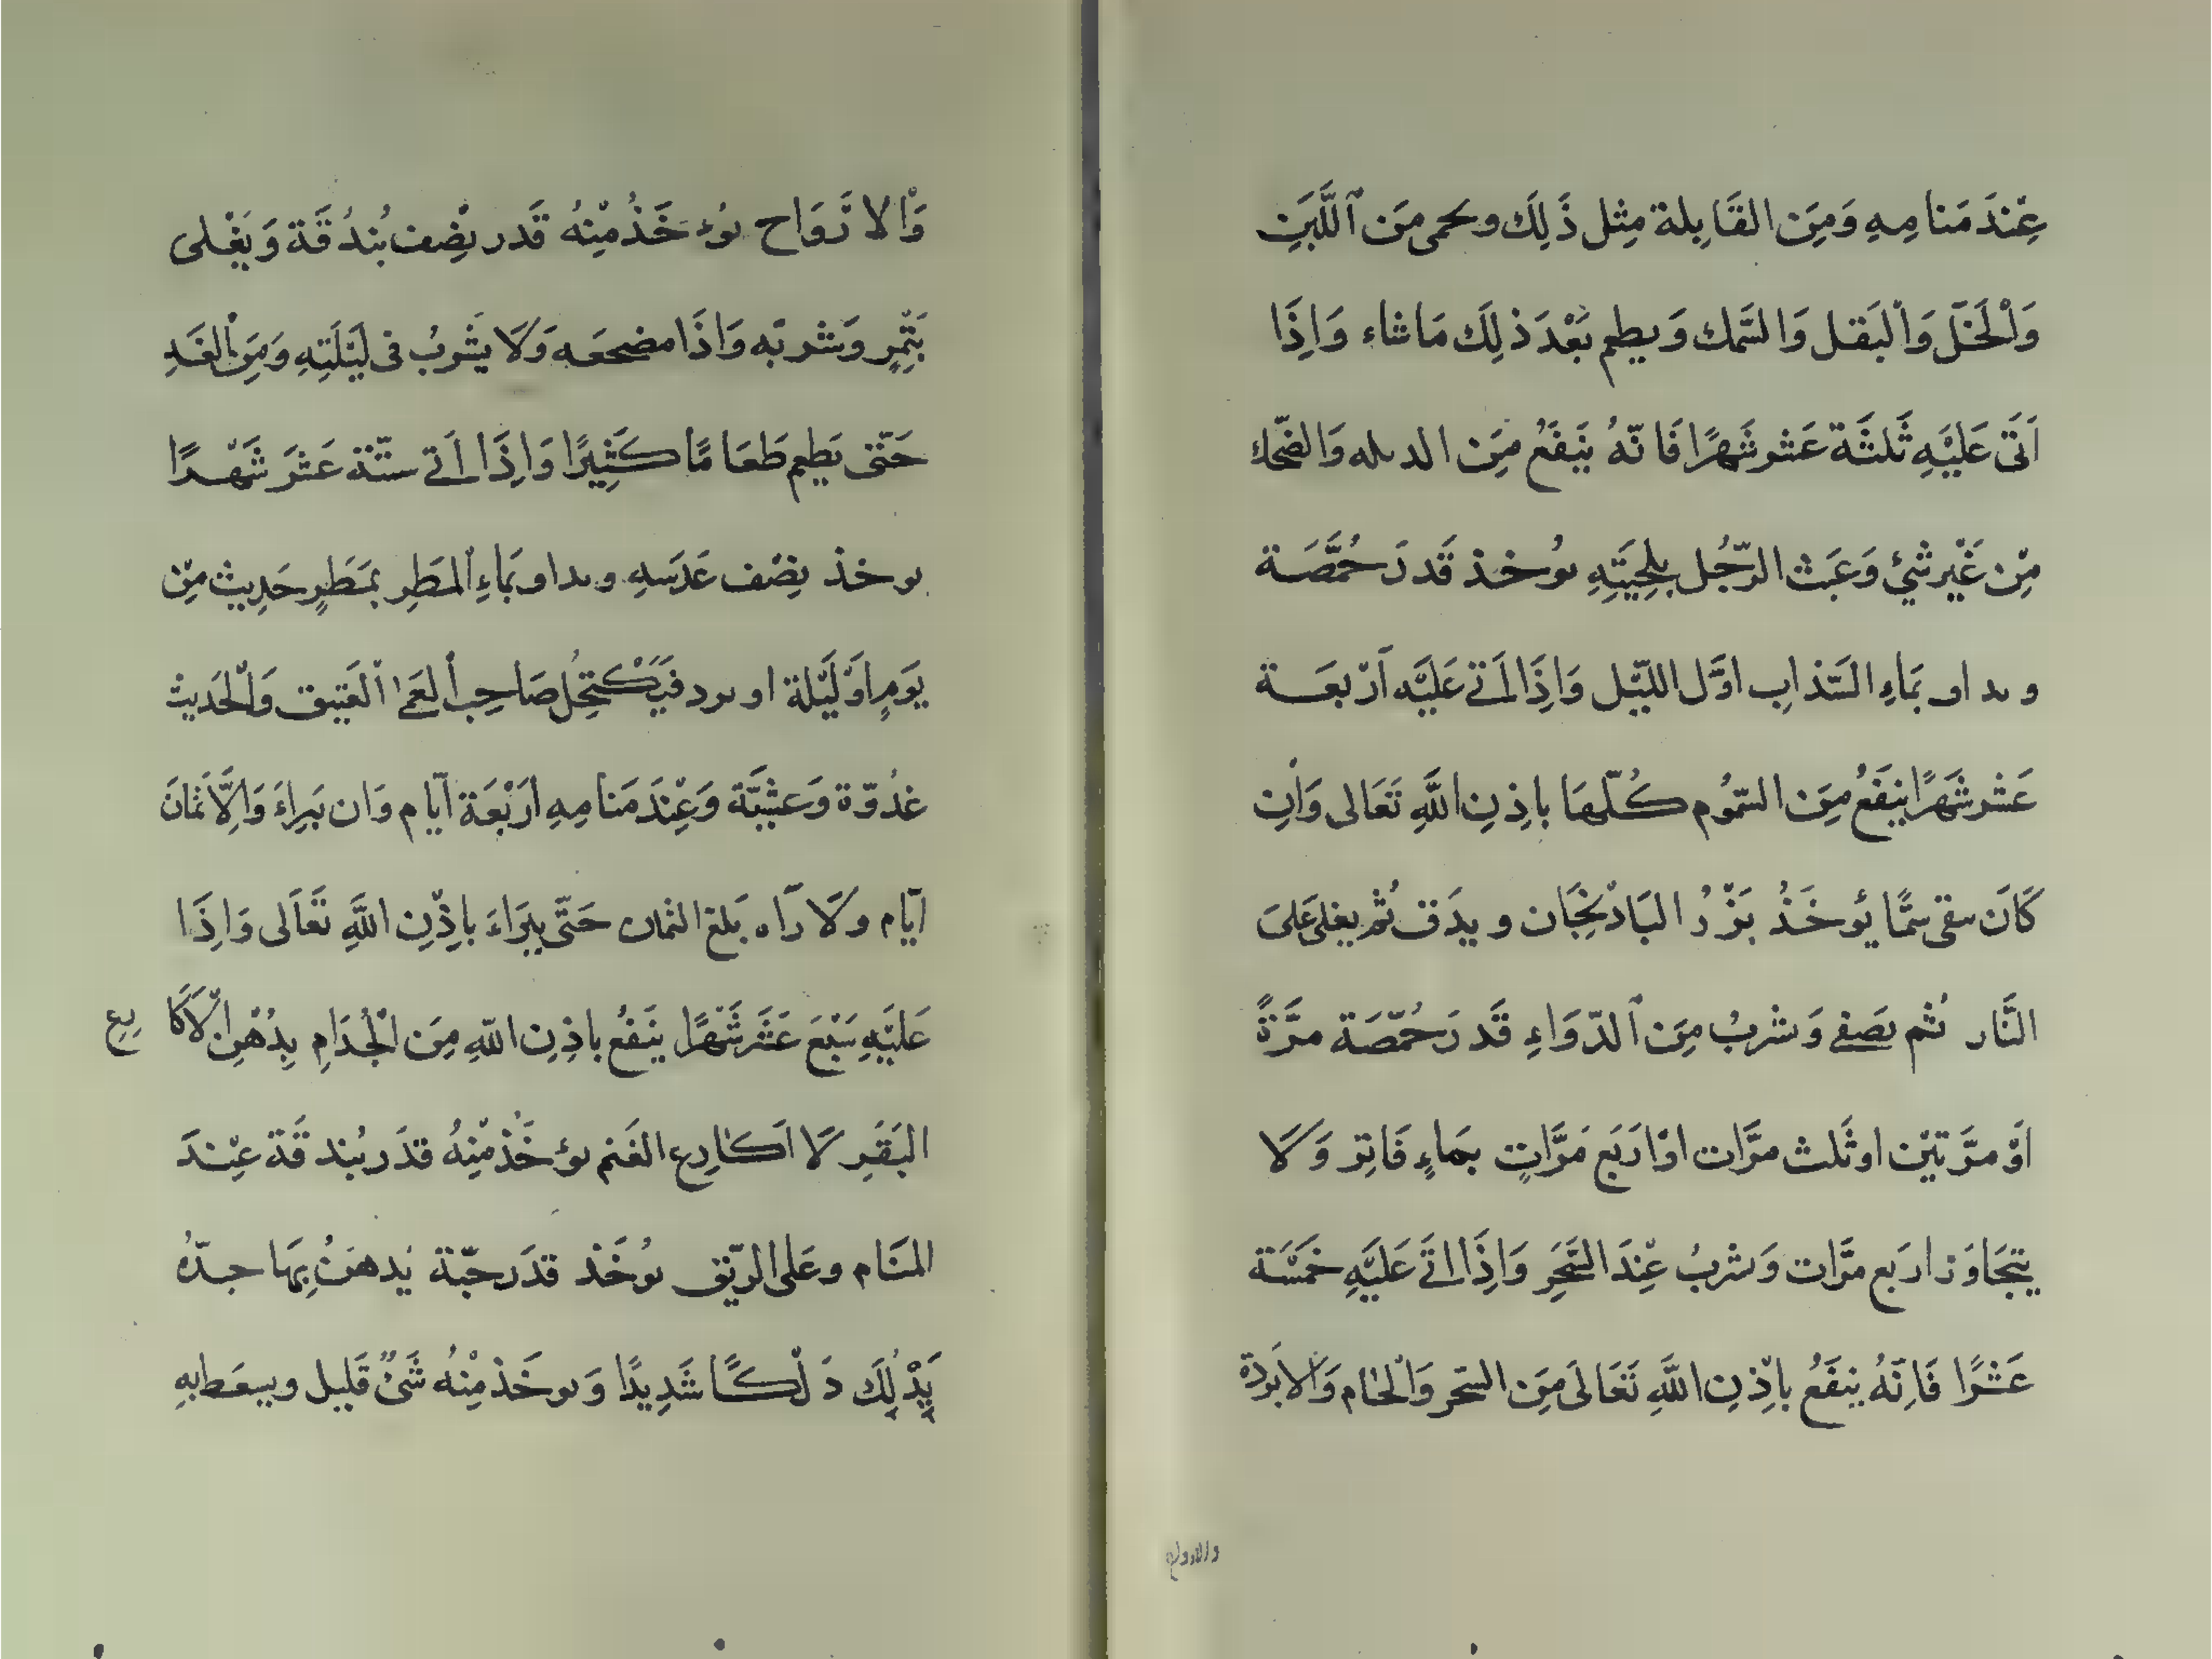 عِنْدَ مَنامِهِ وَمِنَ القَابِلة مِثل ذَلِكَ وىحمى مِنَ ٱللَّبَنِ
وَالْخَلّ وَالبَقل وَالسَّمك وَيطعم بَعْدَ ذلِكَ مَا شاء وَاِذَا
اَتَى عَلَيْهِ ثَلثَة عَشر شَهرًا فَانّهُ يَنفَعُ مِنَ الدىله وَالضّحك
مِن غَيْر شَئ وَعَبَث الرّجُل بلِحيَتِهِ ىوُخذ قَدرَ حُمَّصَة
وىداو بَماءِ السَّذاب اوَّل الليّل وَاِذَا اَتى عَلَيْه اَرْبعَة
عَشر شَهرًا يَنفَعُ مِنَ السّمُوم كُلّهَا باِذِنِ اللَّهِ تَعَالى وَاْن
كَانَ سقى سَمًّا يُوخَذُ بَزْرُ البَاذنْجَان ويدَق ثُم يغلى عَلىَ
النَّار ثُم يصَفى وَىشربُ مِنَ ٱلدّوَاءِ قَدرَ حُمّصَة مرَّةً
اَوْ مرَّتيْن اوثَلث مرَّات اوْ اَربَع مَرَّاتٍ بمَاءٍ فَاتِر وَلَا
يتجَاوَز اربَع مرَّات وَىشربُ عِندَ السَّحَرِ وَاِذَا اتَى عَلَيْهِ خَمسَة
عَشرًا فَاِنّهُ يَنفَعُ باِذْنِ اللَّهِ تَعَالَى مِنَ السّحر وَالْخام وَالابَردة
والارواح
وَالارْوَاح ىوُءخَذُ مِنْهُ قَدر نِصْف بُندُقَة وَيغْلى
بَتْمرٍ وَىشربّه وَاذَا مضجعَه وَلَا يشَربُ فى لَيْلَتِهِ وَمِنَ الْغَدِ
حَتّى يَطعم طَعَامًا كَثِيرًا وَاِذَا اَتى ستّة عَشَر شَهْرًا
ىوخذ نِصْف عَدَسَهِ وىداو بَماءِ الْمطَرِ بمَطَرٍ حَدِيث مِن
يَومٍ اَوْ لَيْلة او ىرد فَيَكْتحِلُ صَاحِب الْعَمٰى الْعَتِيق وَالْحَدِيث
غدُوّة وَعشِيَّة وَعِنْدَ مَنامِهِ اَرْبَعَة اَيّام وَان بَرِاءَ وَاِلَّا ثَمانَ
اَيّام وَلَا رَاه بَلغ الثمان حَتّى يبرَاءَ باِذْنِ اللَّهِ تَعَالَى وَاِذَا
عَلَيْهِ سَبْعَ عَشَر شَهْرًا يَنفَعُ باِذِنِ اللّهِ مِنَ الْجُذَامِ بِدُهْنِ الَاكَا رِع
البَقَرِ لَا اَكارِع الغَنم ىوُءخَذُ مْنِهُ قدَر بُندقَة عِنْدَ
المنَام وعَلى الريّق ىوُخَذ قدَر حَبّة يُدهنُ بِهَا جسدَهُ
يَدْلُكَ دَلْكًا شَدِيدًا وَىوخَذ مِنْهُ شَئٌ قَلِيل وىسعَط بهِ